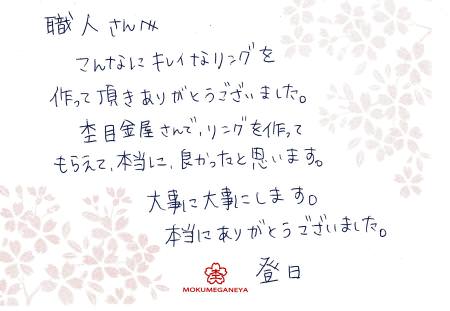 職人さんへ
こんなにキレイなリングを
作って頂きありがとうございました。
杢目金屋さんで、リングを作って
もらえて、本当に、良かったと思います。
大事に大事にします。
本当にありがとうございました。
登日
MOKUMEGANEYA